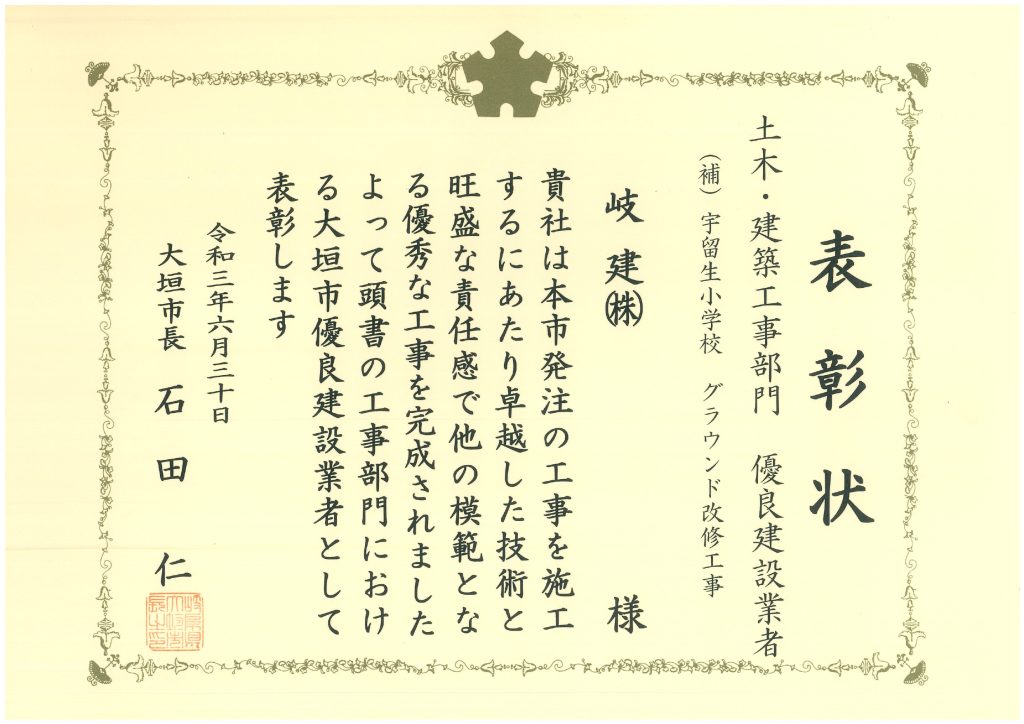 表彰状
土木・建築工事部門　優良建設業者
（補）宇留生小学校　グラウンド改修工事
岐建㈱　様
貴社は本市発注の工事を施工
するにあたり卓越した技術と
旺盛な責任感で他の模範とな
る優秀な工事を完成されました
よって頭書の工事部門におけ
る大垣市優良建設業者として
表彰します
令和三年六月三十日
大垣市長　石田　仁